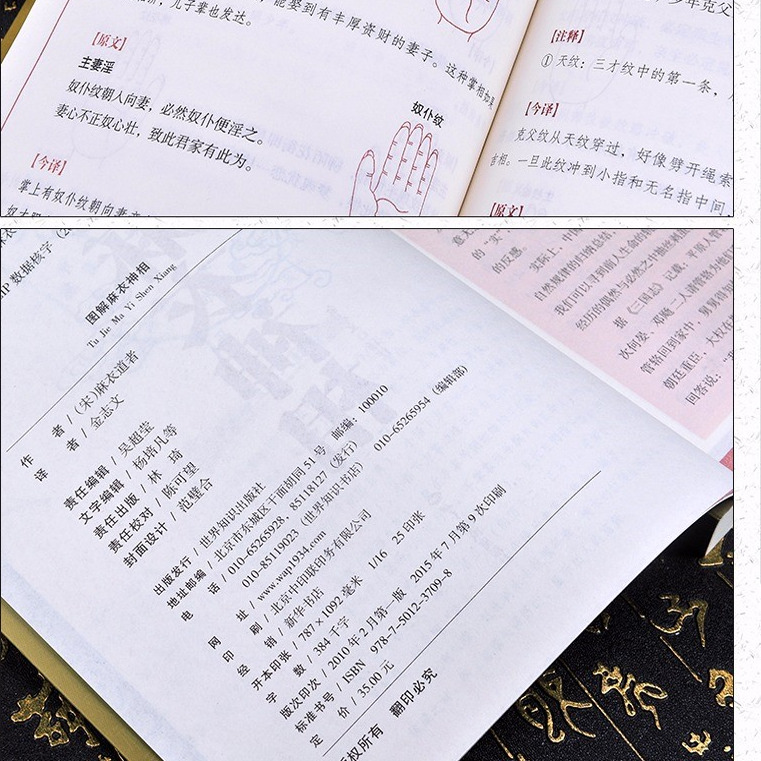 能娶到有丰厚资财的妻子。这种掌相如果
儿子辈也发达。
【原文】
主妻淫
奴仆纹朝人向妻，必然奴仆便淫之。
妻心不正奴心壮，致此君家有此为。
【今译】
掌上有奴仆纹朝向妻
奴仆纹
少年克父
【注释】
①天纹：三才纹中的第一条，
【今译】
克父纹从天纹穿过，好像劈开绳索
吉相。一旦此纹冲到小指和无名指中间
【原文】
数据核字
图解麻衣神相
Tu Jie Ma Yi Shen Xiang
作 者 / （宋）麻衣道者
译 者 / 金志文
责任编辑 / 吴超莹
文字编辑 / 杨培凡等
责任出版 / 林 琦
责任校对 / 陈可望
封面设计 / 范璧合
出版发行 / 世界知识出版社
地址邮编 / 北京市东城区干面胡同 51 号 邮编：100010
电 话 / 010-65265928，85118127（发行） 010-65265954（编辑部）
010-85119023（世界知识书店）
网 址 / www.wap1934.com
印 刷 / 北京中印联印务有限公司
经 销 / 新华书店
开本印张 / 787×1092 毫米 1/16 25 印张
字 数 / 384 千字
版次印次 / 2010 年 2 月第一版 2015 年 7 月第 9 次印刷
标准书号 / ISBN 978-7-5012-3709-8
定 价 / 35.00 元
权所有 翻印必究
的“实”
的反感。
实际上，中
自然规律的归纳总结，
我们可以寻到前人生命的轨
经历的偶然与必然之中抽丝剥茧
据《三国志》记载，平原人管
次何晏、邓飏二人请管辂对他们
管辂回到家中，舅舅得知
朝廷重臣，大权在
回答说：“